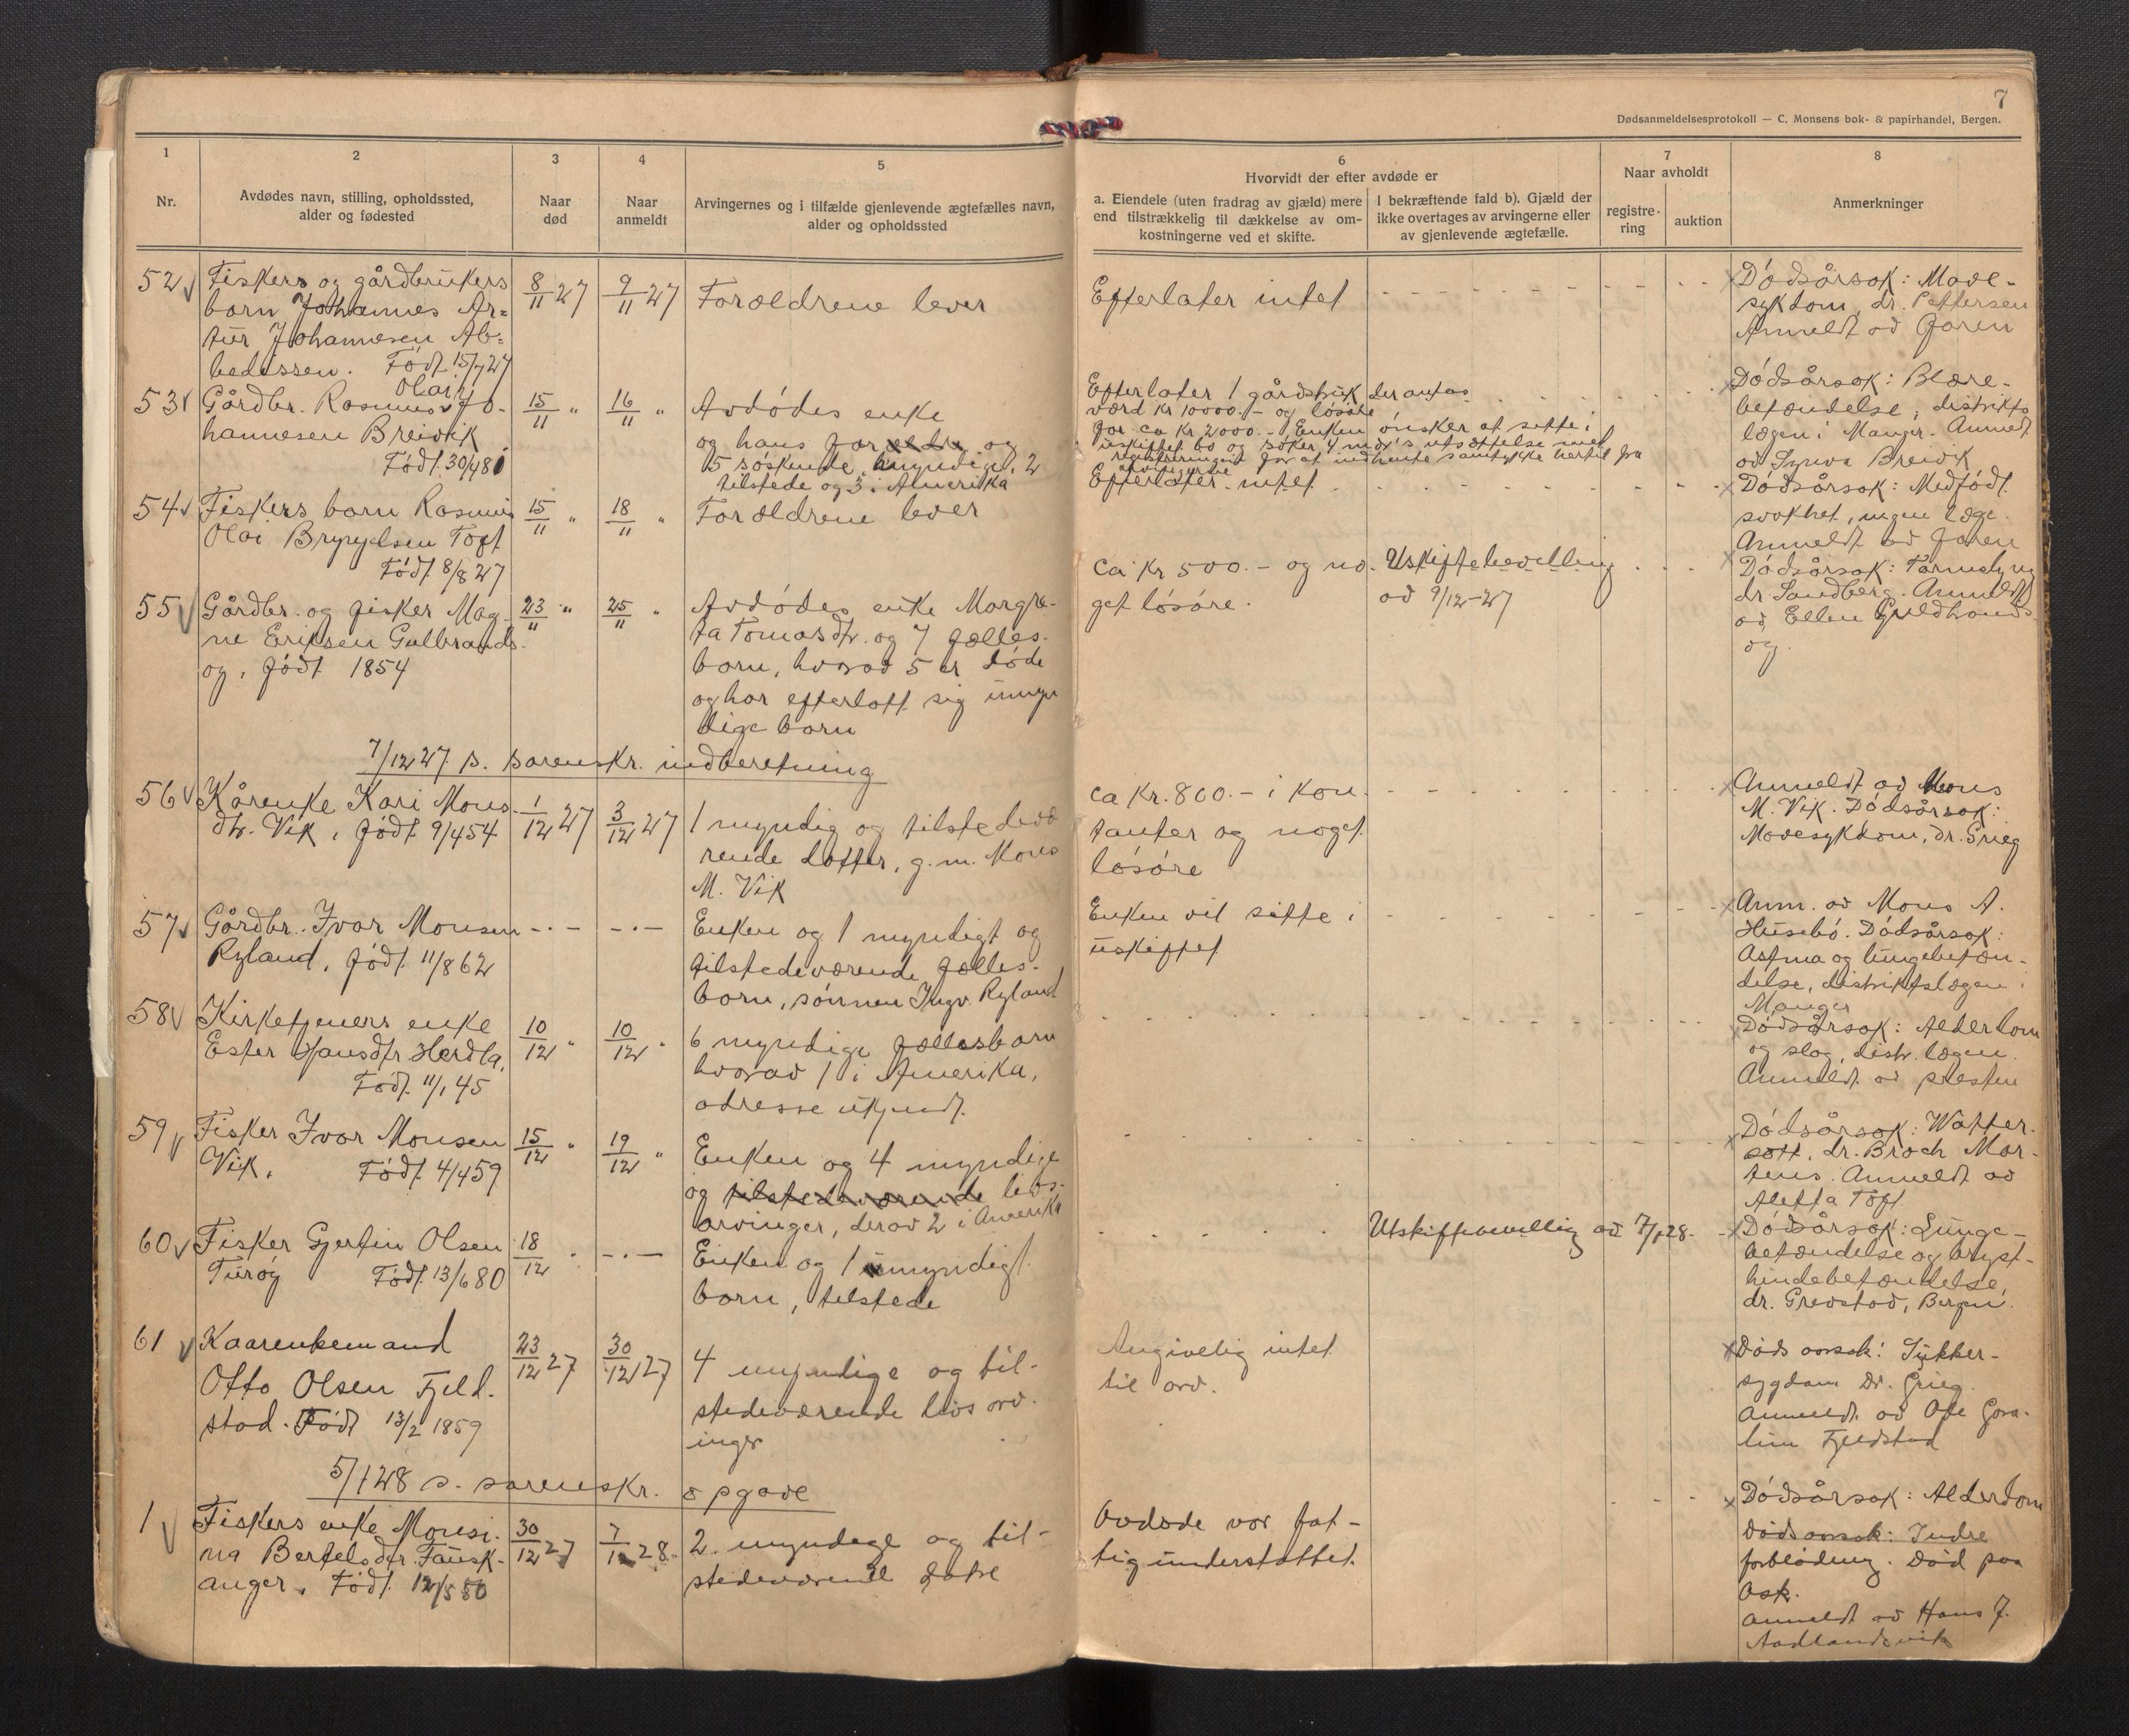 7
Dødsanmeldelsesprotokoll — C. Monsens bok- & papirhandel, Bergen.
1
Nr.
2
Avdødes navn, stilling, opholdssted,
alder og fødested
3
Naar
død
4
Naar
anmeldt
5
Arvingernes og i tilfælde gjenlevende ægtefælles navn,
alder og opholdssted
6
Hvorvidt der efter avdøde er
a. Eiendele (uten fradrag av gjæld) mere
end tilstrækkelig til dækkelse av om-
kostningerne ved et skifte.
I bekræftende fald b). Gjæld der
ikke overtages av arvingerne eller
av gjenlevende ægtefælle.
7
Naar avholdt
registre-
ring
auktion
8
Anmerkninger
52
Fiskers og gårdbrukers
barn Johannes Ar=
tur Johannesen Ab=
bedissen. Født 15/7 27
8/11 27
9/11 27
Forældrene lever
Efterlater intet
Dødsårsak: Mave-
sykdom, dr. Pettersen
Anmeldt av faren
53
Olai
Gårdbr. Rasmus Jo-
hannesen Breivik
Født 30/4 81
15/11 "
16/11 "
Avdødes enke
og hans forældre og
5 søskende, myndige, 2
tilstede og 3 i Amerika
Efterlater 1 gårdsbruk der antas
værd kr 10000.- og løsøre
for ca kr 2000.- Enken ønsker at sitte i
uskiftet bo og søker 4 mdr's utsættelse med
registreringen for at indhente samtykke hertil fra
arvingerne
Dødsårsak: Blære-
betændelse, distrikts
lægen i Manger. Anmeldt
av Breivik
54
Fiskers barn Rasmus
Olai Brynjelsen Toft
Født 8/8 27
15/11 "
18/11 "
Forældrene lever
Efterlater intet
Dødsårsak: Medfødt
svakhet, ingen læge.
Anmeldt av faren
55
Gårdbr. og fisker Mag-
ne Eriksen Gulbrands-
øy, født 1854
23/11 "
25/11 "
Avdødes enke Margre-
ta Tomasdtr. og 7 fælles-
barn, hvorav 5 er døde
og har efterlatt sig umyn
dige barn
Ca kr 500.- og no-
get løsøre.
Uskiftebevilling
av 9/12-27
Dødsårsak: Tarmslyng
dr Sandberg. Anmeldt
av Ellen Guldbrands
øy
7/12 27 s. sorenskr. indberetning
56
Kårenke Kari Mons
dtr. Vik, født 9/4 54
1/12 27
3/12 27
1 myndig og tilstedevæ
rende datter, g.m. Mons
M. Vik
Ca kr. 800.- i kon-
tanter og noget
løsøre
Anmeldt av Mons
M. Vik. Dødsårsak:
Mavesykdom, dr. Grieg
57
Gårdbr. Ivar Monsen
Ryland, født 11/8 62
-.-
-.-
Enken og 1 myndigt og
tilstedeværende fælles-
barn, sønnen Ingv. Ryland
Enken vil sitte i
uskiftet
Anm. av Mons A.
Husebø. Dødsårsak:
Astma og lungebetæn-
delse, distriktslægen i
Manger
58
Kirketjeners enke
Ester Hansdtr Herdla,
Født 11/1 45
10/12 "
10/12 "
6 myndige fællesbarn
hvorav 1 i Amerika,
adresse ukjendt.
Dødsårsak: Alderdom
og slag, distr. lægen.
Anmeldt av presten
59
Fisker Ivar Monsen
Vik, Født 4/4 59
15/12 "
19/12 "
Enken og 4 myndige
og tilstedeværende livs-
arvinger, derav 2 i Amerika
Dødsårsak: Watter-
sott, dr. Broch Mar-
tens. Anmeldt av
Aletta Toft
60
Fisker Gjertin Olsen
Turøy Født 13/6 80
18/12
-.-
Enken og 1 umyndigt
barn, tilstede
Utskiftebevillig av 7/1 28.
Dødsårsak: Lunge-
betændelse og bryst-
hindebetændelse,
dr. Grevstad, Bergen.
61
Kaarenkemand
Otto Olsen Fjeld-
stad. Født 13/2 1859
23/12 27
30/12 27
4 myndige og til-
stedeværende livsarv-
inger
Angivelig intet
til arv.
Døds aarsak: Sukker-
sygdom Dr. Grieg
Anmeldt av
Fjeldstad
5/1 28 s. sorenskr. opgave
1
Fiskers enke Monsi-
na Bertelsdtr. Fausk-
anger. Født 12/5 50
30/12 27
7/1 28.
2 myndige og til-
stedeværende døtre
Avdøde var fat-
tigunderstøttet.
Dødsårsak: Alderdom
Døds aarsak: Indre
forblødning. Død paa
Ask.
Anmeldt av Hans J.
Aadlandsvik